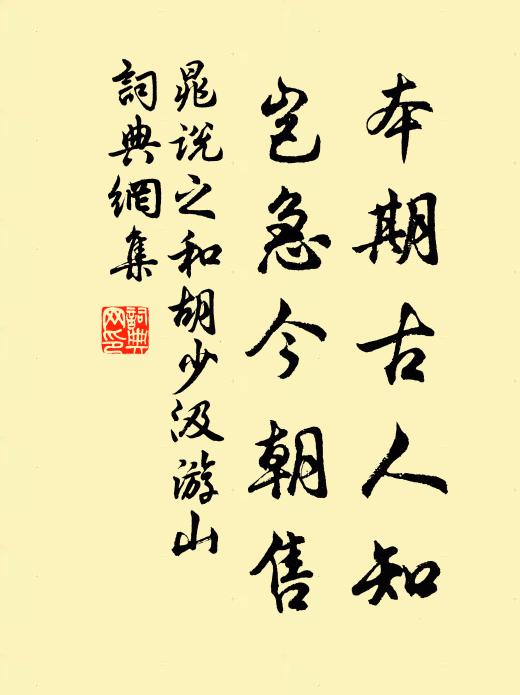 本期古人知
豈急今朝售
晁說之和胡少汲游山
詞典網集
詞典
网印